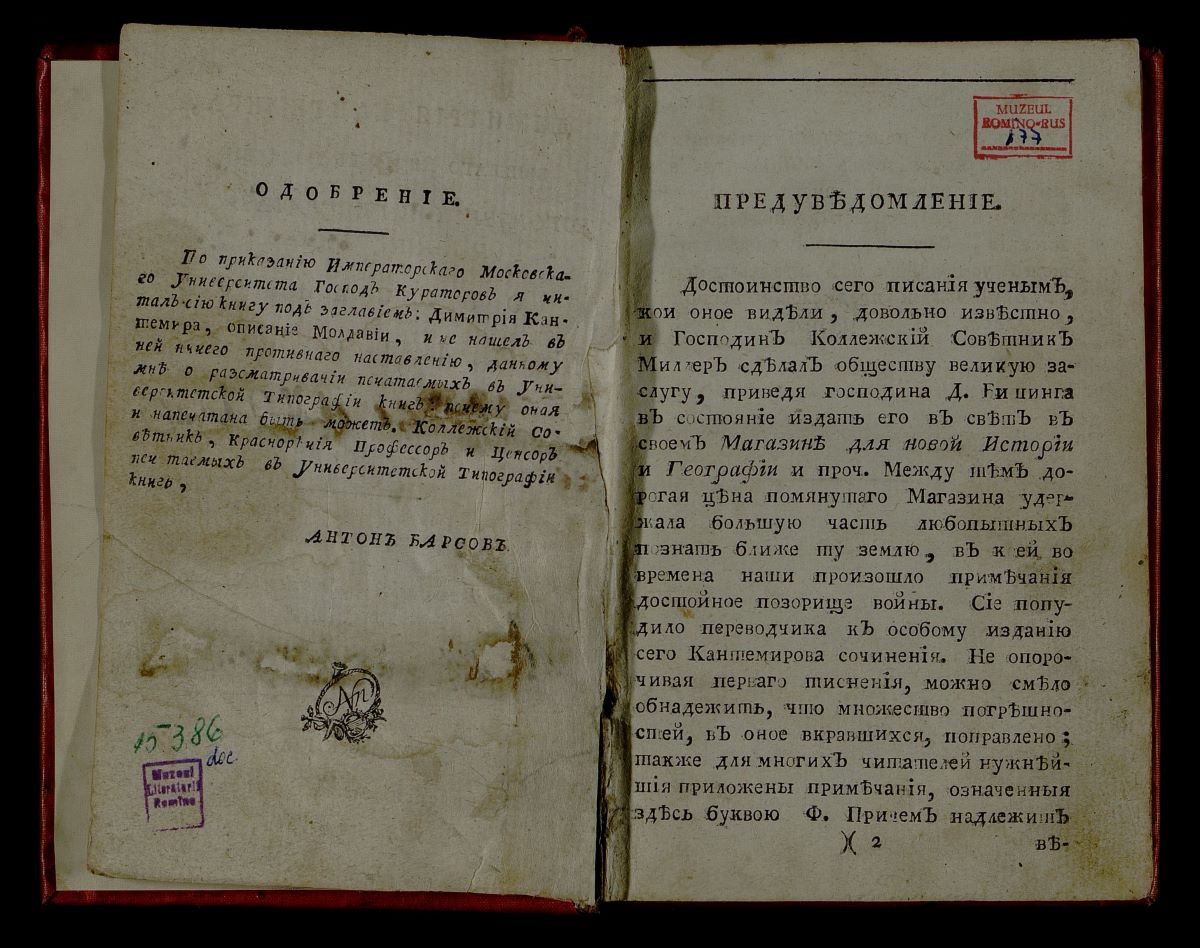 ОДОБРЕНІЕ.
По приказанію Императорскаго Московска-
го Университета Господъ Кураторовъ я чи-
талъ сію книгу подъ заглавіемъ: Димитрія Кан-
темира, описаніе Молдавіи, и не нашелъ въ
ней ничего противнаго наставленію, данному
мнѣ о разсматриваніи печатаемыхъ въ Уни-
верситетской Типографіи книгъ; почему оная
и напечатана быть можетъ. Коллежскій Со-
вѣтникъ, Краснорѣчія Профессоръ и Ценсоръ
печатаемыхъ въ Университетской Типографіи
книгъ,
АНТОНЪ БАРСОВЪ.
АП
15386
doc.
Muzeul
Literaturii
Romîne
MUZEUL
ROMÎNO-RUS
177
ПРЕДУВѢДОМЛЕНІЕ.
Достоинство сего писанія ученымъ,
кои оное видѣли, довольно извѣстно,
и Господинъ Коллежскій Совѣтникъ
Миллеръ сдѣлалъ обществу великую за-
слугу, приведя господина Д. Бишинга
въ состояніе издать его въ свѣтъ въ
своемъ Магазинѣ для новой Исторіи
и Географіи и проч. Между тѣмъ до-
рогая цѣна помянутаго Магазина удер-
жала большую часть любопытныхъ
познать ближе ту землю, въ коей во
времена наши произошло примѣчанія
достойное позорище войны. Сіе побу-
дило переводчика къ особому изданію
сего Кантемирова сочиненія. Не опоро-
чивая перваго тисненія, можно смѣло
обнадежить, что множество погрѣшно-
стей, въ оное вкравшихся, поправлено;
также для многихъ читателей нужнѣй-
шія приложены примѣчанія, означенныя
здѣсь буквою Ф. Причемъ надлежитъ
)( 2 вѣ-